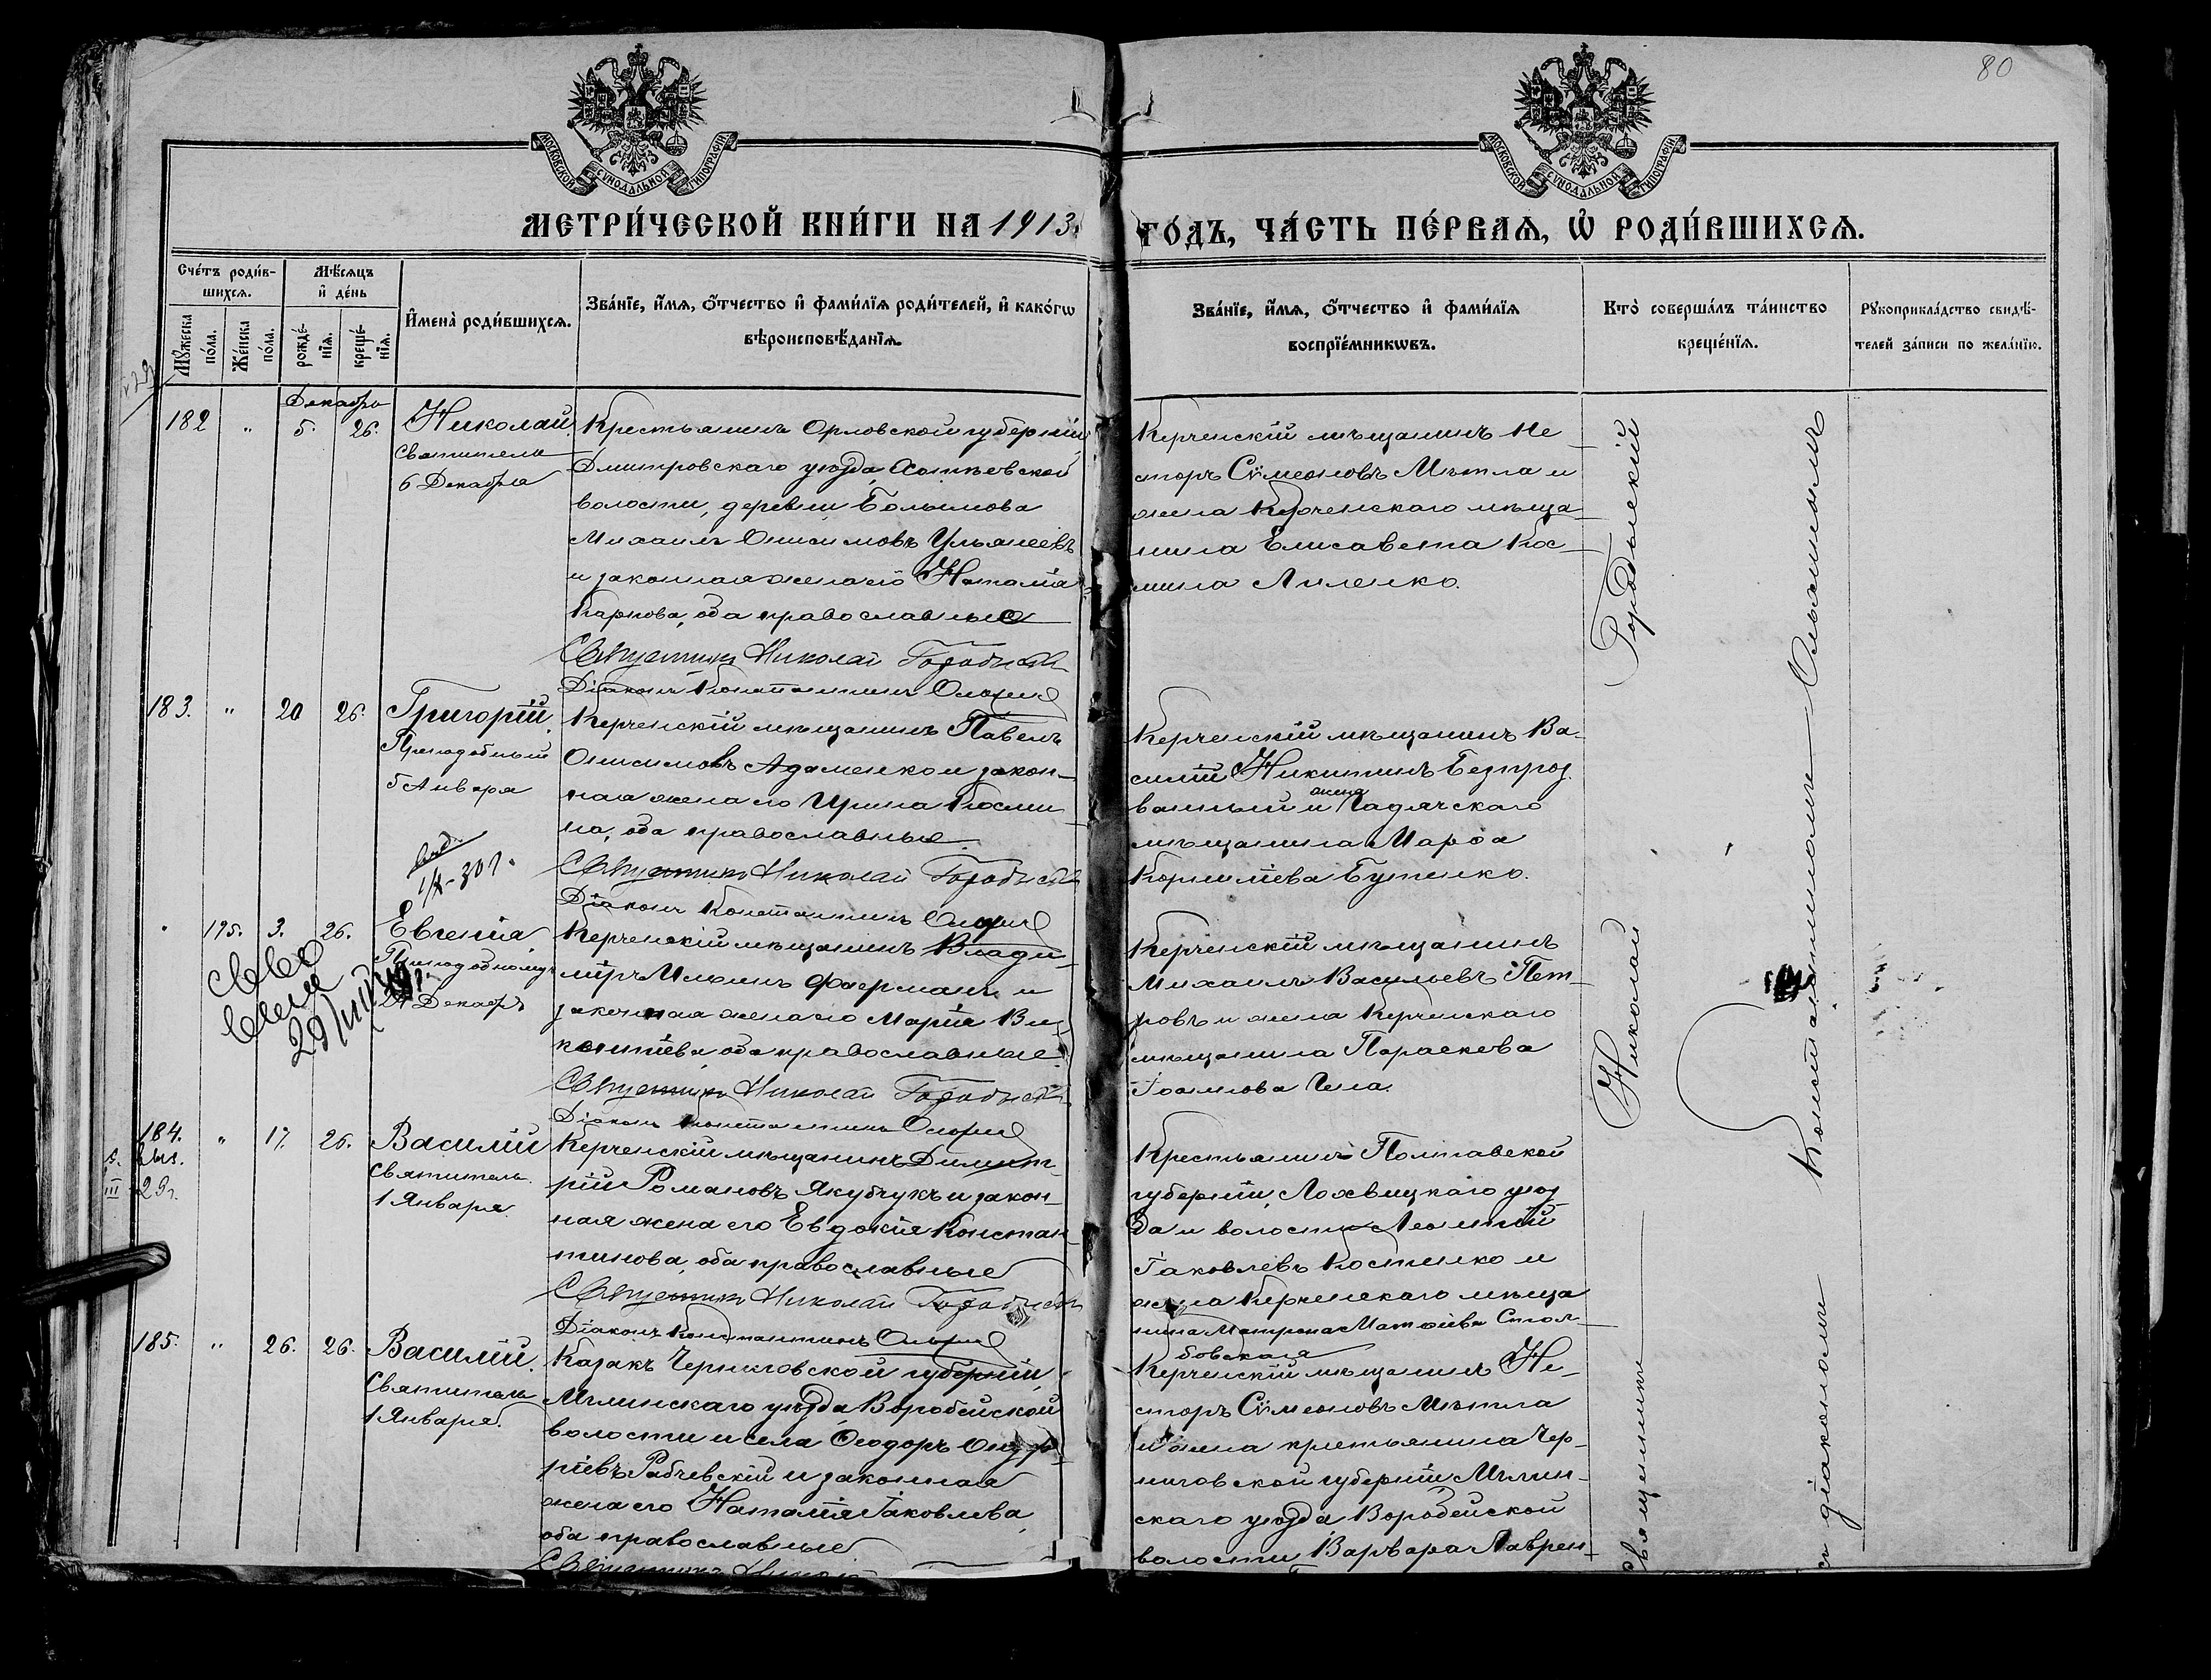 80
МОСКОВСКОЙ СѴНОДАЛЬНОЙ ТИПОГРАФІИ.
МОСКОВСКОЙ СѴНОДАЛЬНОЙ ТИПОГРАФІИ.
МЕТРИ́ЧЕСКОЙ КНИ́ГИ НА 1913
ГО́ДЪ, ЧА́СТЬ ПЕ́РВАѦ, Ѿ РОДИ́ВШИХСѦ.
Сче́тъ роди́в-
шихсѧ.
Мꙋ́жеска по́ла.
Же́нска по́ла.
Мѣ́сѧцъ
и҆ де́нь
рожде́-
нїѧ.
креще́-
нїѧ.
И҆мена̀ роди́вшихсѧ.
Зва́нїе, и҆́мѧ, ѻ҆́тчество и҆ фами́лїѧ роди́телей, и҆ како́гѡ
вѣроисповѣ́данїѧ.
Зва́нїе, и҆́мѧ, ѻ҆́тчество и҆ фами́лїѧ
воспрїе́мникѡвъ.
Кто̀ соверша́лъ та́инство
креще́нїѧ.
Рꙋкоприкла́дство свидѣ́-
телей за́писи по жела́нїю.
Декабрь
182 " 5. 26. Николай
Святителя
6 Декабря
Крестьянинъ Орловской губерніи
Дмитровскаго уѣзда,
волости, деревни
Михаилъ Онисимовъ Ульянеевъ
и законная жена его Наталія
Карпова, оба православные
Священникъ Николай
Діаконъ Константинъ
Керченскій мѣщанинъ Не-
сторъ Сѵмеоновъ Мѣтла и
жена Керченскаго мѣща-
нина Елисавета Кос-
мина
183. " 20 26. Григорій.
Преподобный
5 Января
1/X-30 г.
Керченскій мѣщанинъ Павелъ
Онисимовъ Адаменко и закон-
ная жена его Ирина Косми-
на, оба православные.
Священникъ Николай
Діаконъ Константинъ
Керченскій мѣщанинъ Ва-
силій Никитинъ Безпроз-
ванный и жена Гадячскаго
мѣщанина Марѳа
Корниліева Бутенко.
" 175. 3. 26. Евгенія
24 Декабр
29/III
Керченскій мѣщанинъ Влади-
міръ Ильинъ Фаерманъ и
законная жена его Марія Ви-
кентіева оба православные
Священникъ Николай
Діаконъ Константинъ
Керченскій мѣщанинъ
Михаилъ Васильевъ Пет-
ровъ и жена Керченскаго
мѣщанина Параскева
Іоаннова
184. " 17. 26. Василій
III 29 г.
Святитель
1 Января.
Керченскій мѣщанинъ Димит-
рій Романовъ Якубчукъ и закон-
ная жена его Евдокія Констан-
тинова, оба православные
Священникъ Николай
Діаконъ Константинъ
Крестьянинъ Полтавской
губерніи, Лохвицкаго уѣз-
да и волости Леонтій
Іаковлевъ Костенко и
жена Керченскаго мѣща-
нина Матрона Матѳіева Стол-
бовская
185. " 26. 26. Василій.
Святитель
1 Января.
Казакъ Черниговской губерніи,
Мглинскаго уѣзда, Воробейской
волости и села Ѳеодоръ
Рабчевскій и законная
жена его Наталія Іаковлева,
оба православные
Священникъ Николай
Керченскій мѣщанинъ Не-
сторъ Сѵмеоновъ Мѣтла
и жена крестьянина Чер-
ниговской губерніи Мглин-
скаго уѣзда Воробейской
волости Варвара Лаврен-
Священникъ Николай
съ діакономъ Константиномъ